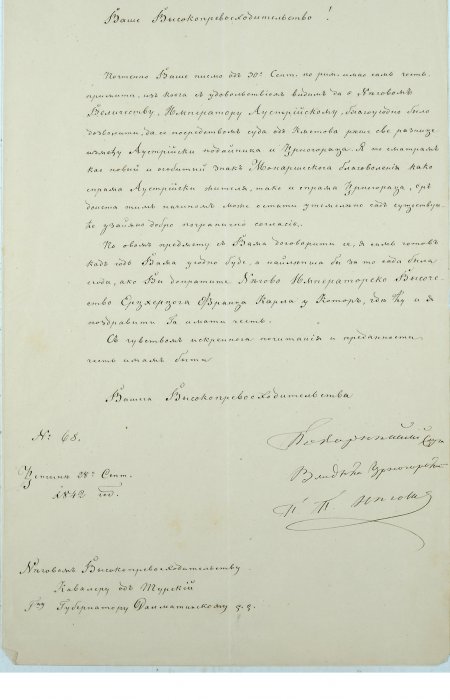 Ваше Высокопревосходительство!
Почтено Ваше писмо одъ 30. Септ. по рим. имао самъ честь
примити, изъ коега съ удовольствіемъ видимъ да є Нѣговомъ
Величеству, Императору Аустрійскому, благоугодно было
дозволити, да се посредствомъ суда одъ реше све разпице
између Аустрійски поданика и Црногораца. Я то сматрамъ
као новый и особитый знакъ Монаршескога благоволенія како
спрама Аустрійски жителя, тако и спрама Црногораца, єръ
доиста тимъ начиномъ може се стати садъ существую-
ће узаймно добро погранично согласіє.
По овомъ предмету съ Вама договорити се, я самъ готовъ
кадъ годъ Вама угодно буде, а найлепша бы за то сода была
сода, ако Вы допратите Нѣгово Императорско Высоче-
ство Ерцхерцога Франца Карла у Которъ, гди ћу и я
поздравити Га имати честь.
Съ чувствомъ искренога почитанія и преданности
честь имамъ быти
Вашега Высокопревосходительства
№ 68.
Покорнѣйшій слуга
Цетинѣ 28. Септ.
Владыка Црногорскій
1842 год.
П. П. Нѣгошъ
Нѣговомъ Высокопревосходительству
Кавалеру одъ Турскій
Гну Губернатору Далматинскому